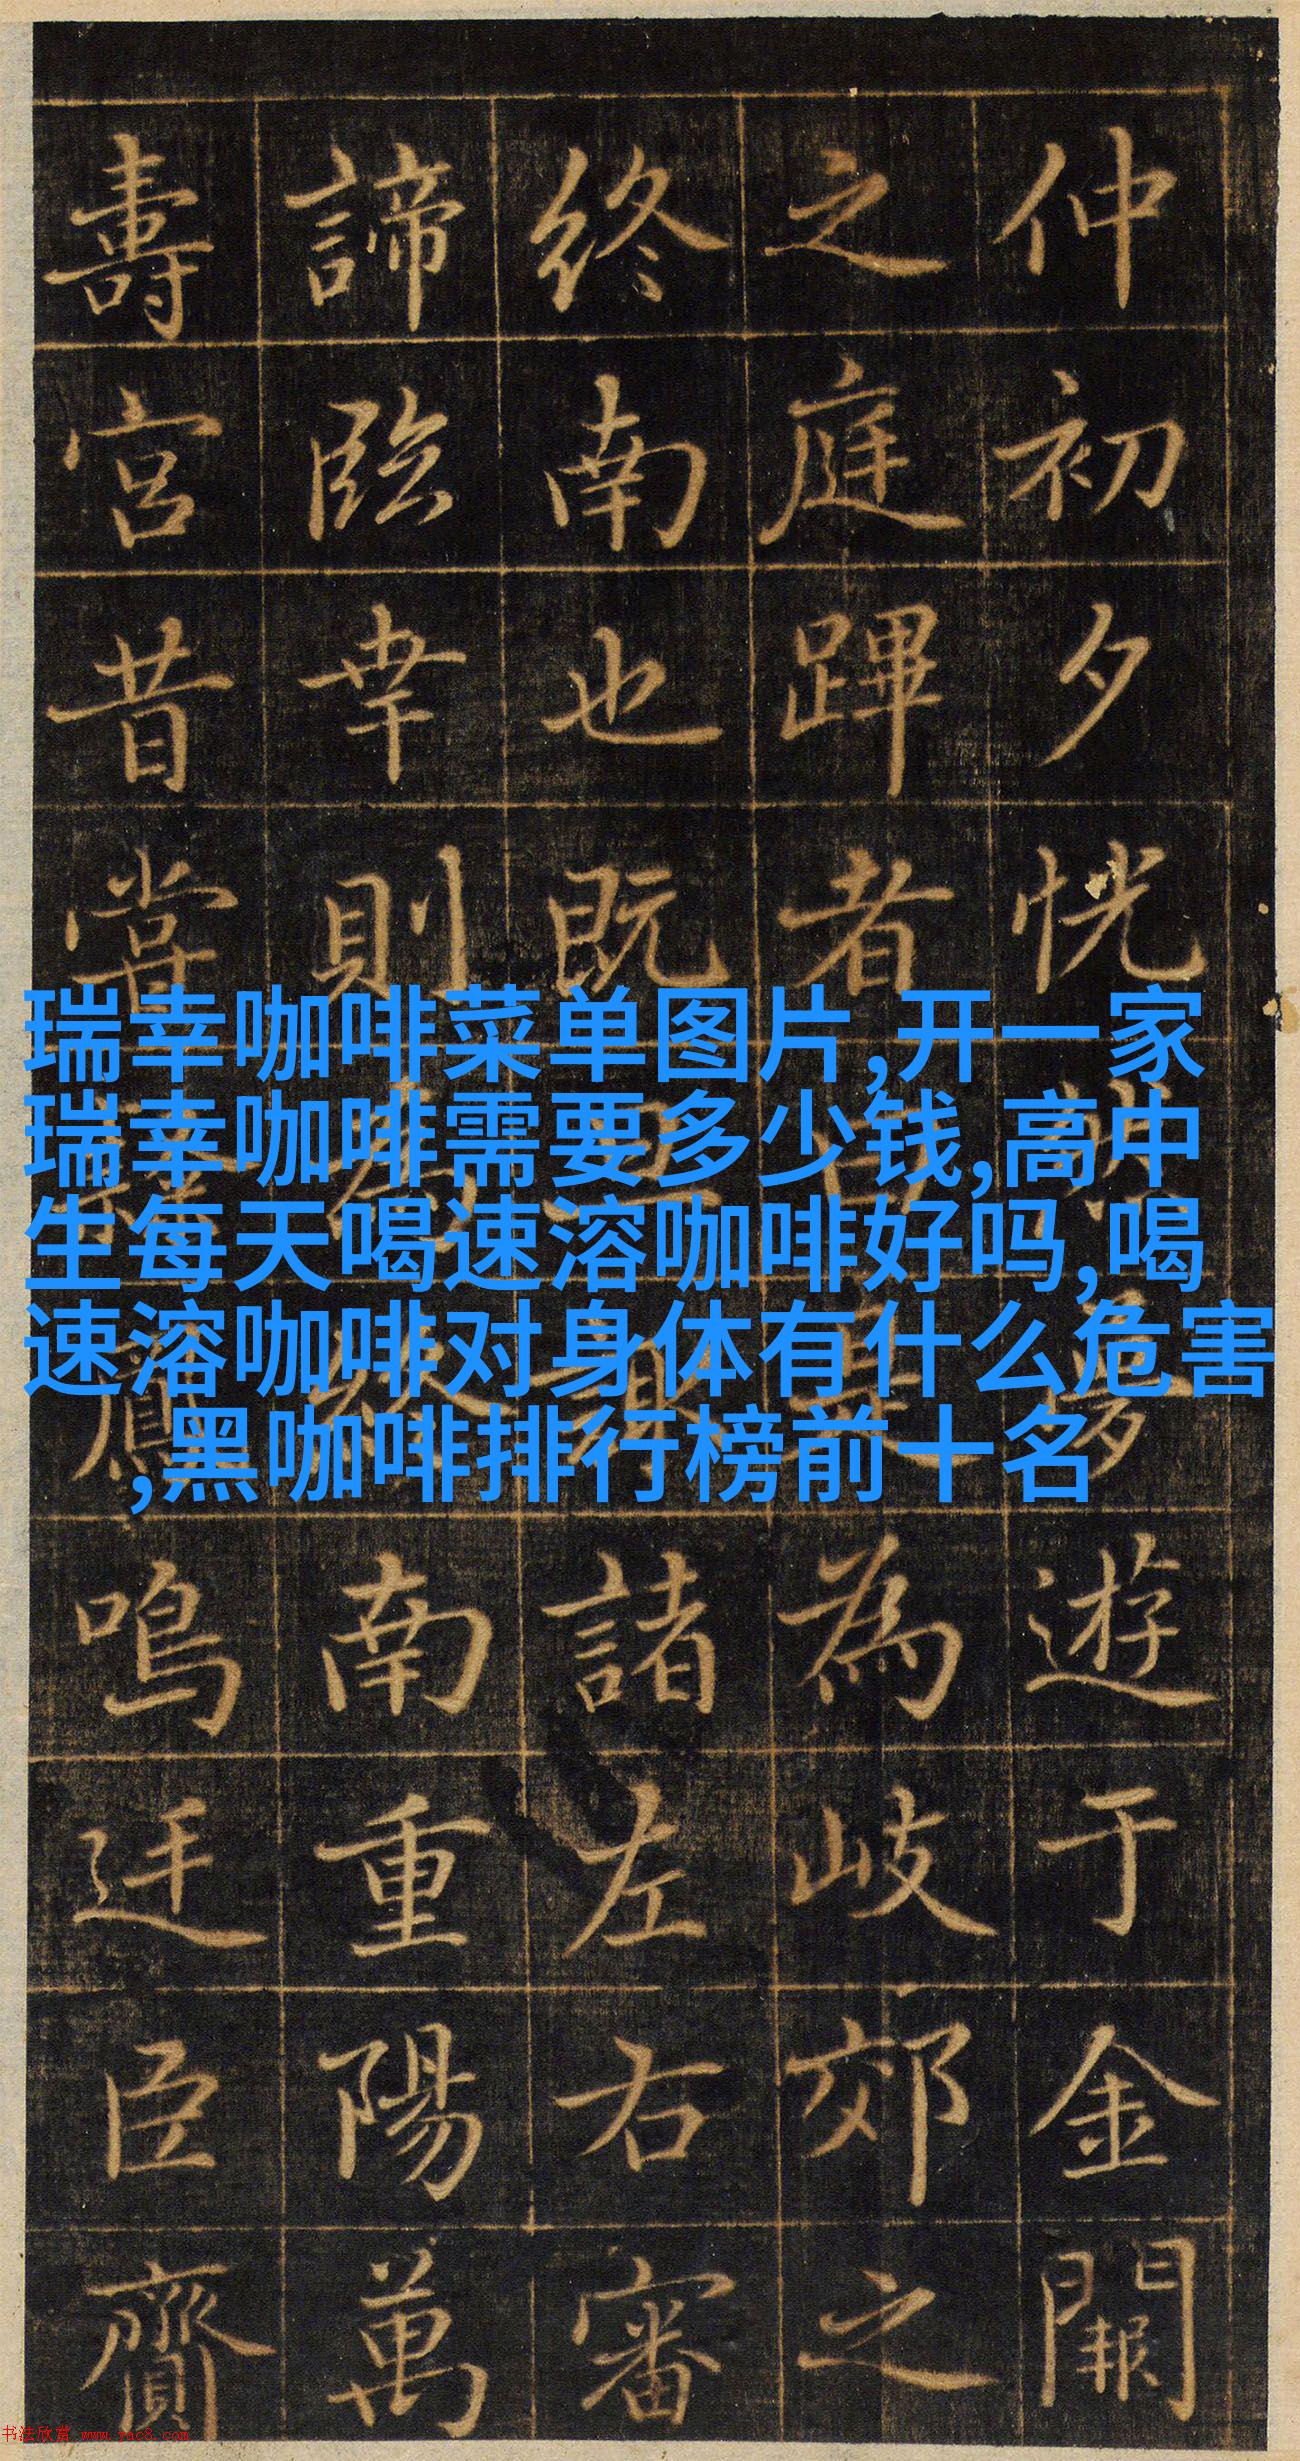 仲初夕恍遊于金闕
之庭蹕者是為岐郊之
終南也既諸左右審
諦臨幸則南重陽萬
壽宮昔嘗鳴迋臣齎
瑞幸咖啡菜单图片,开一家
瑞幸咖啡需要多少钱,高中
生每天喝速溶咖啡好吗,喝
速溶咖啡对身体有什么危害
,黑咖啡排行榜前十名
书法欣赏 www.yac8.com